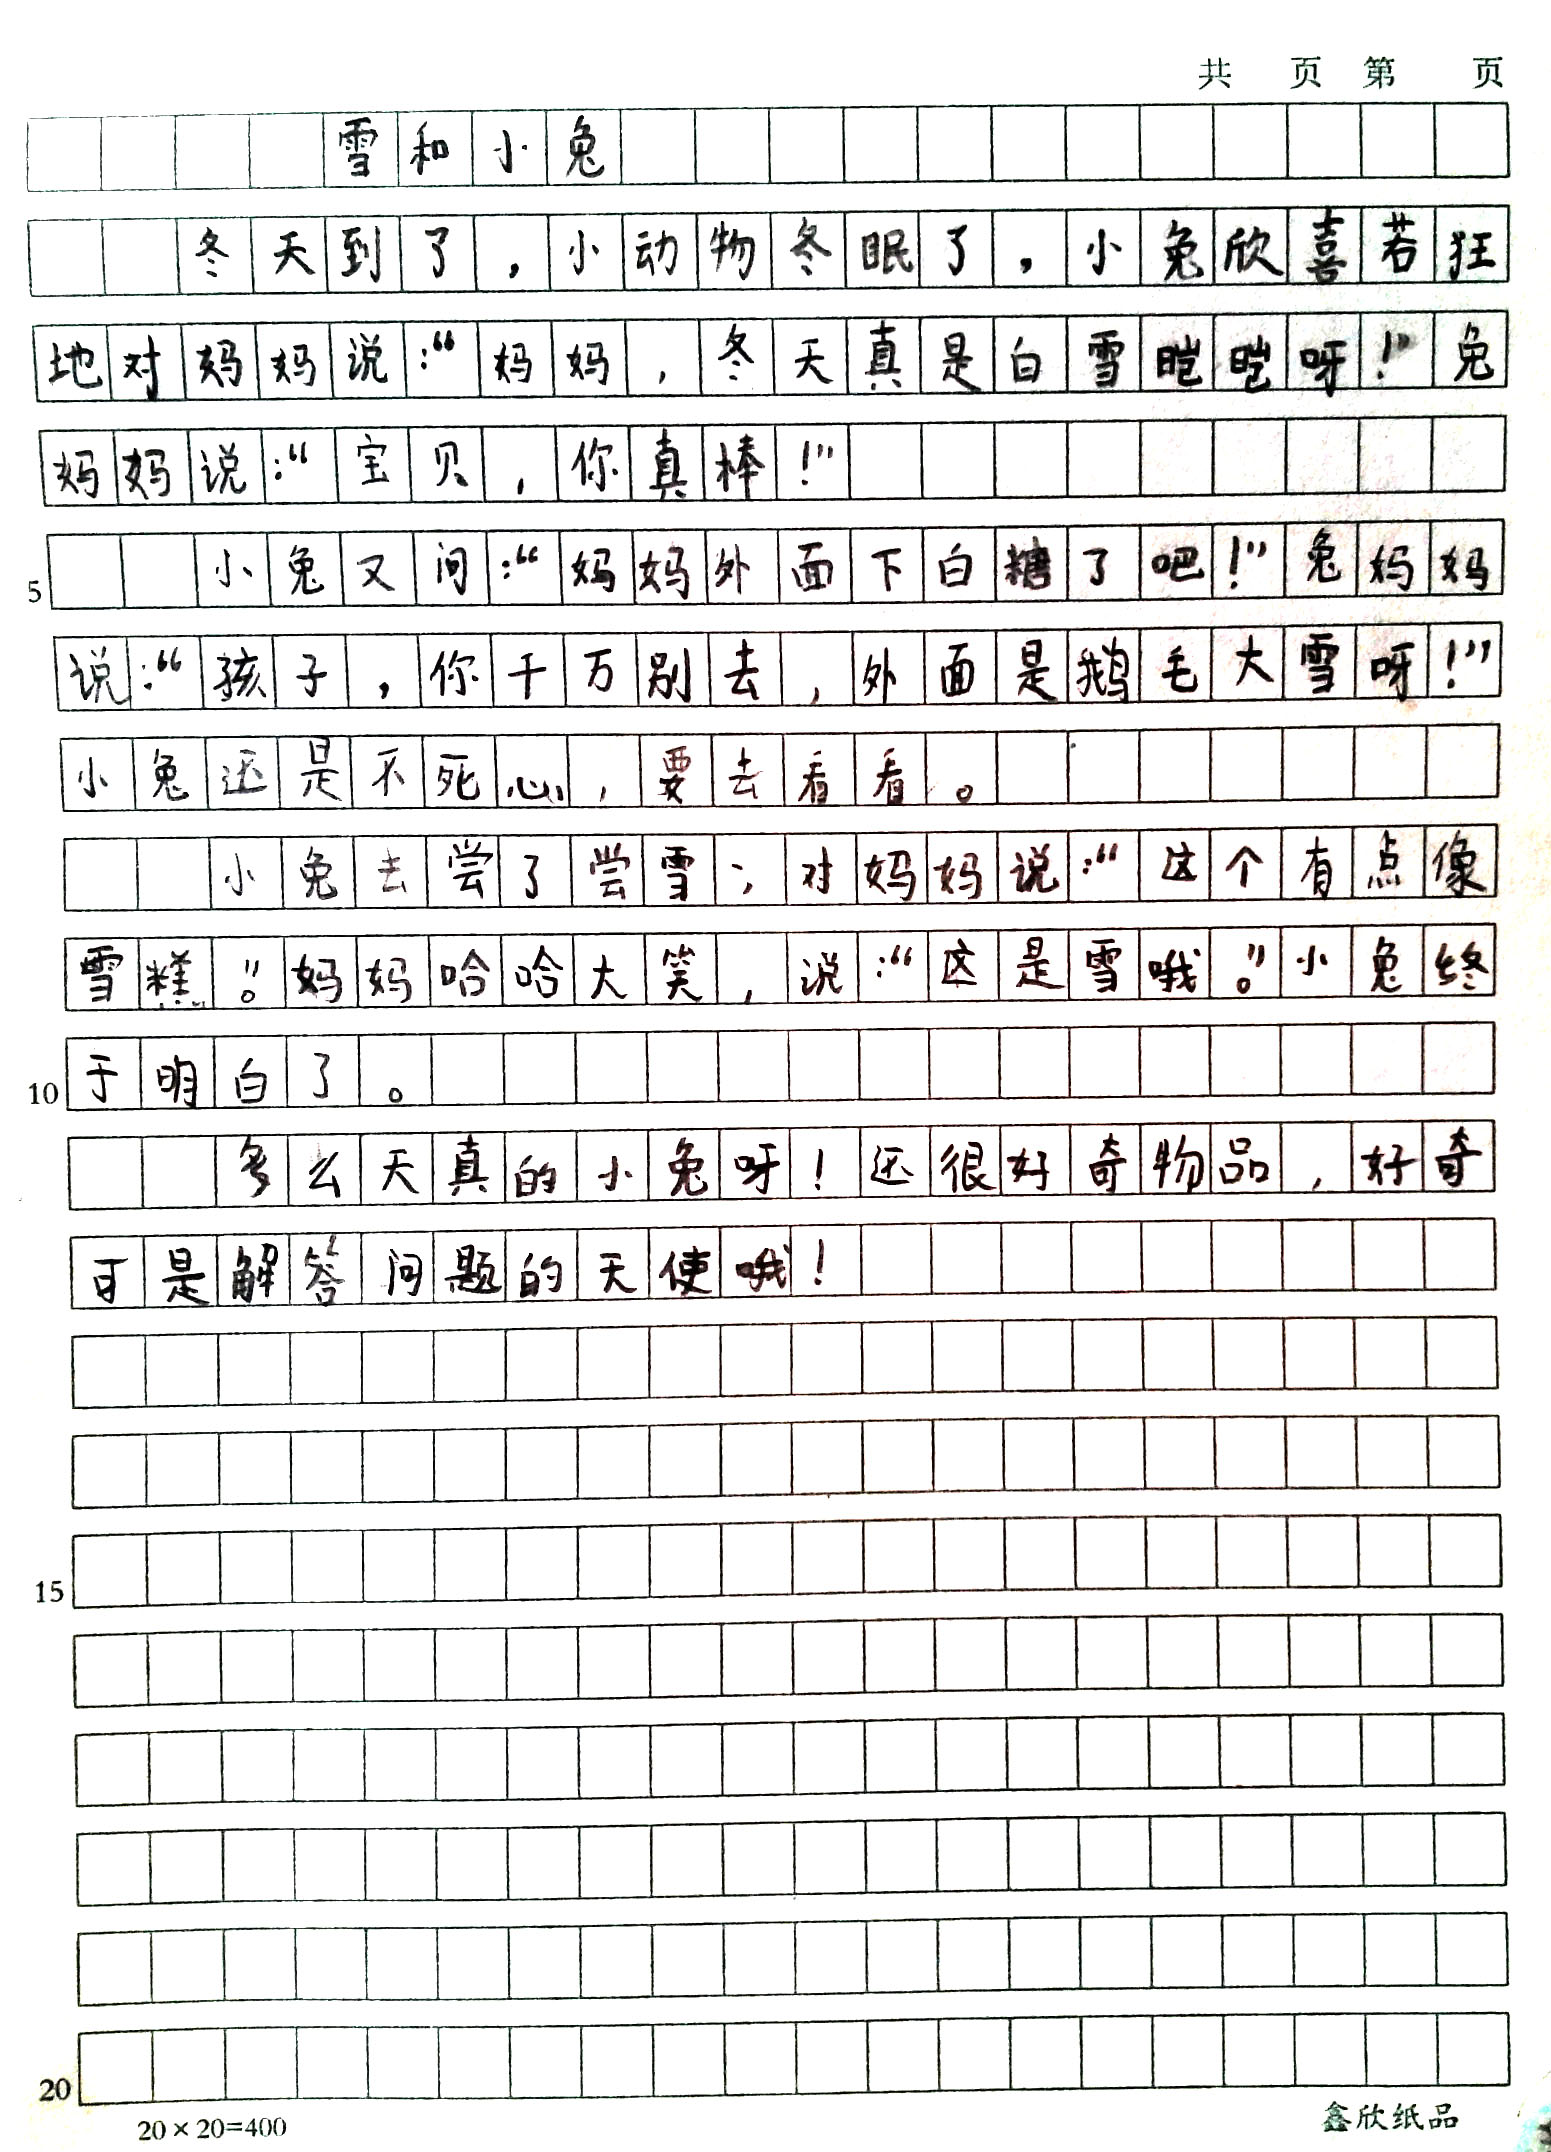 共 页 第 页
雪和小兔
冬天到了，小动物冬眠了，小兔欣喜若狂
地对妈妈说：“妈妈，冬天真是白雪皑皑呀！”兔
妈妈说：“宝贝，你真棒！”
5 小兔又问：“妈妈外面下白糖了吧！”兔妈妈
说：“孩子，你千万别去，外面是鹅毛大雪呀！”
小兔还是不死心，要去看看。
小兔去尝了尝雪，对妈妈说：“这个有点像
雪糕。”妈妈哈哈大笑，说：“这是雪哦。”小兔终
10 于明白了。
多么天真的小兔呀！还很好奇物品，好奇
可是解答问题的天使哦！
15
20
20×20=400 鑫欣纸品